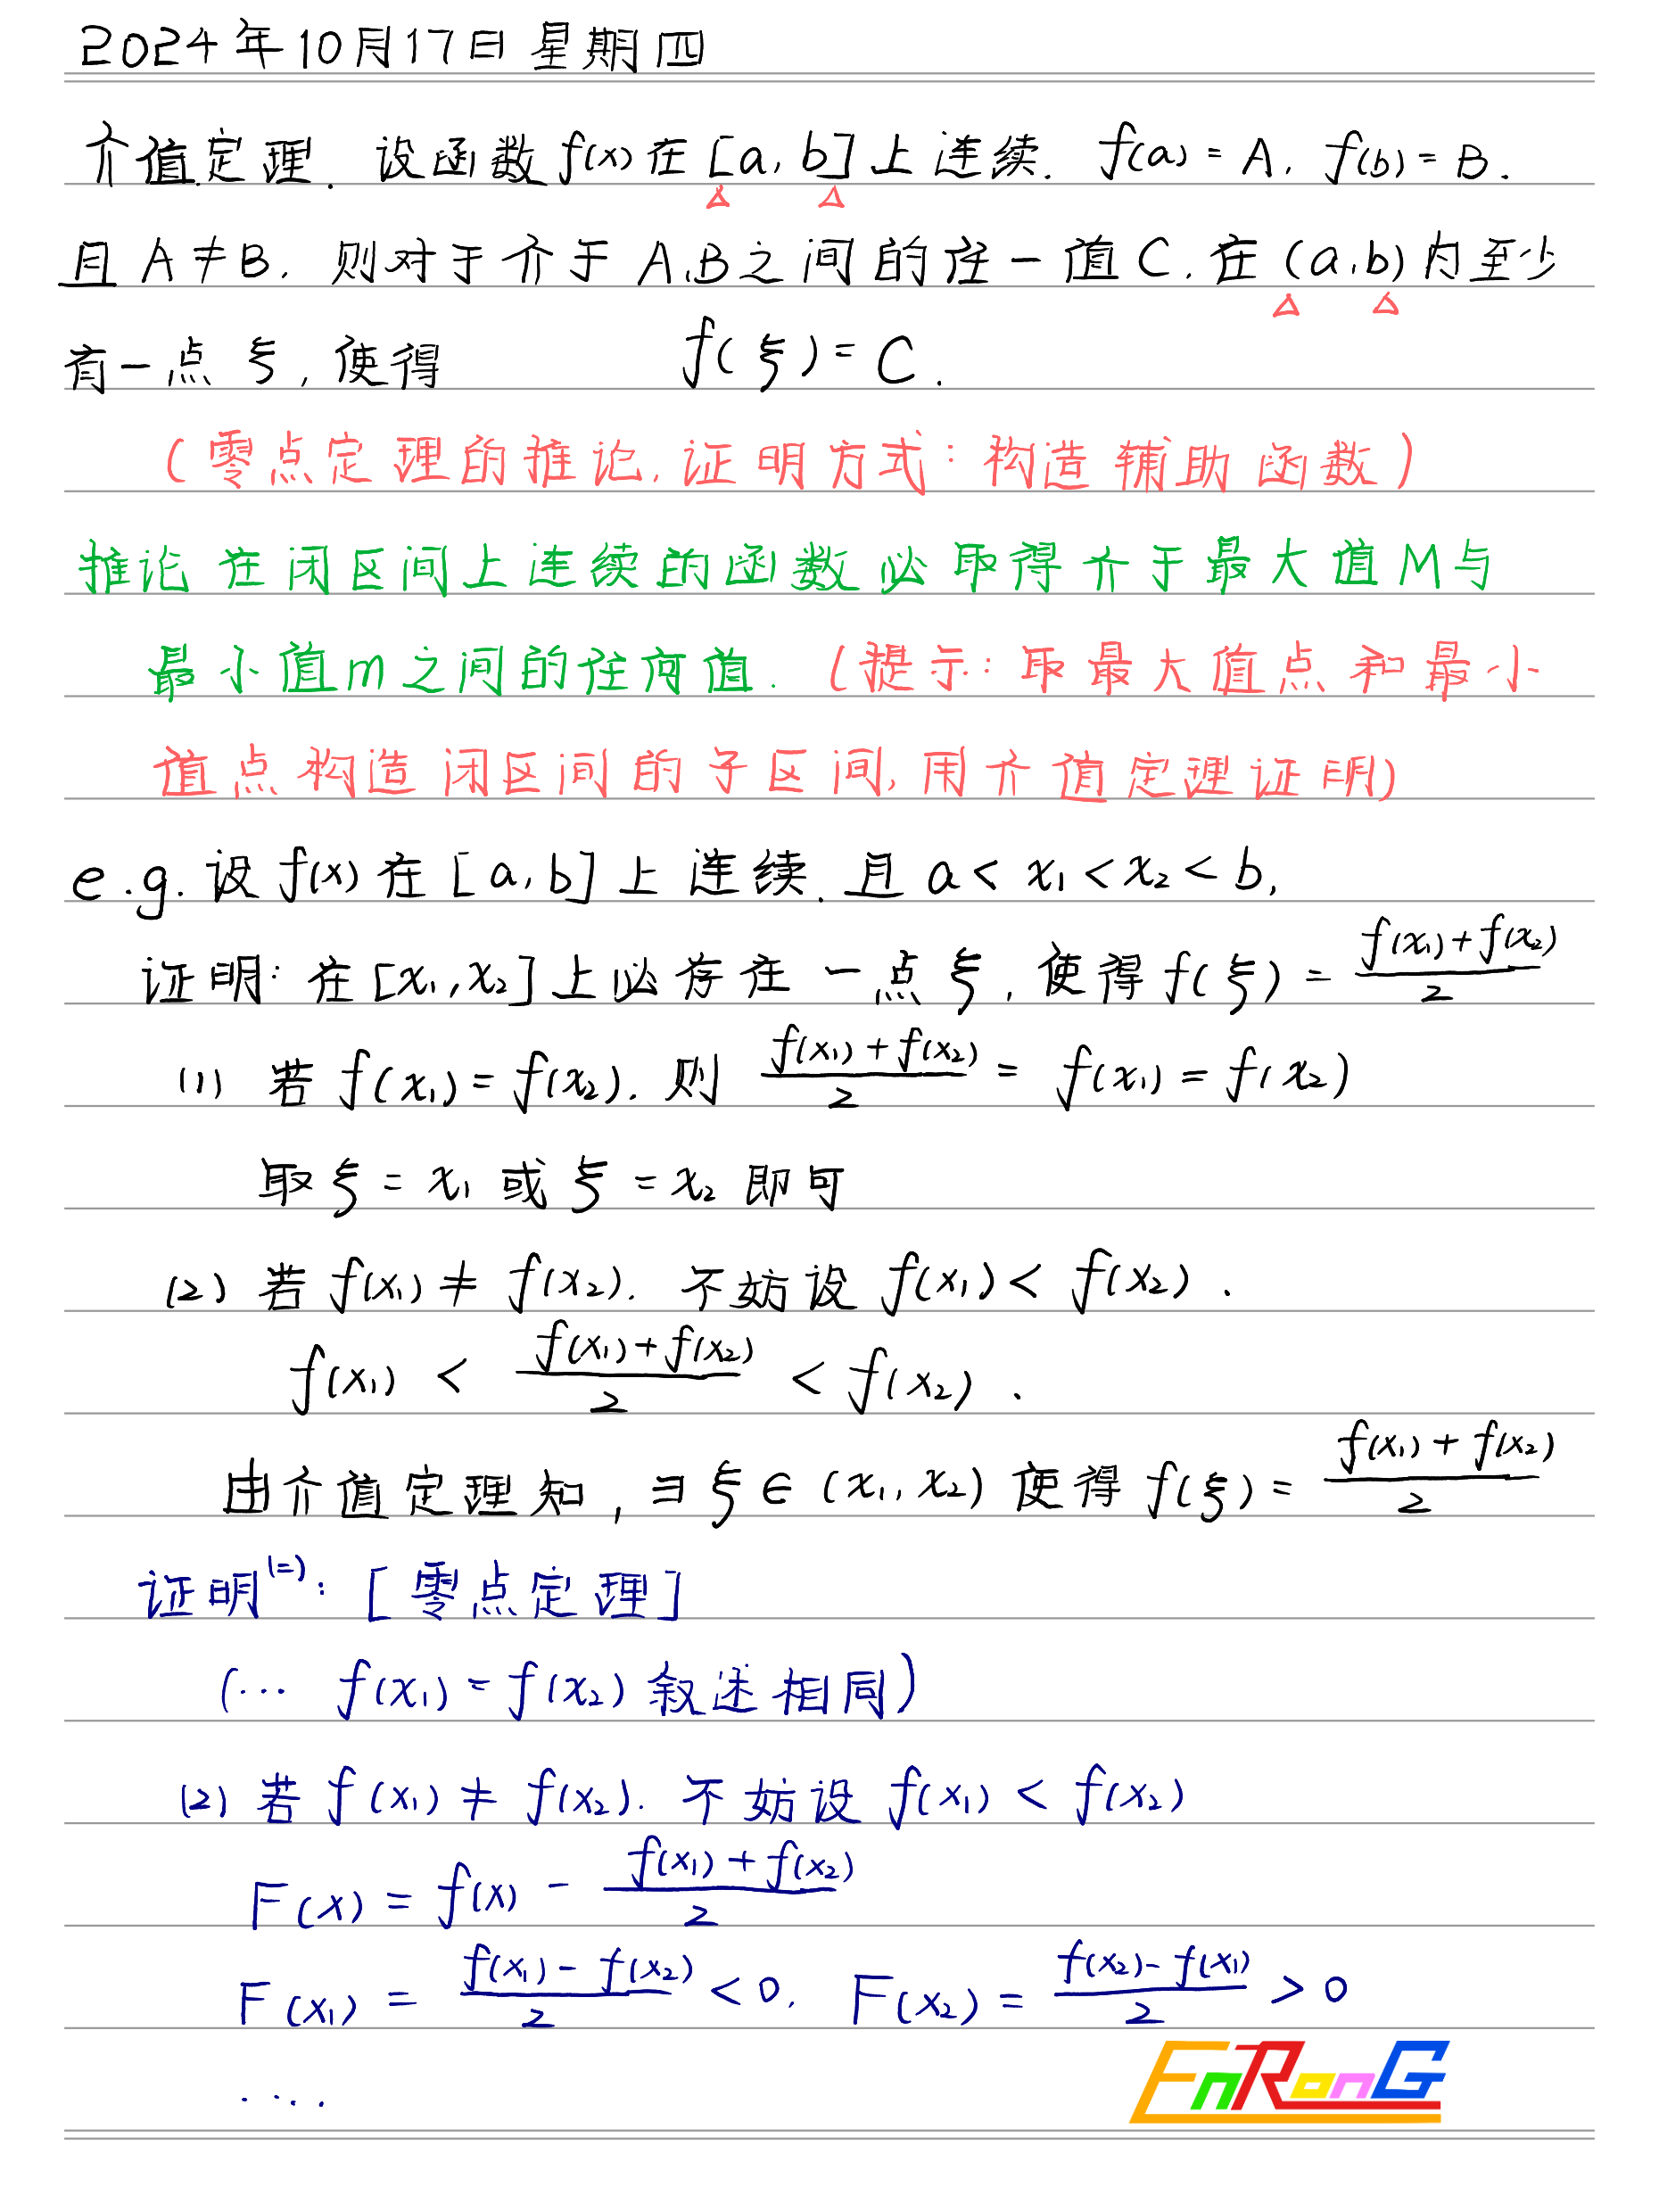 2024年10月17日 星期四
介值定理. 设函数 f(x) 在 [a, b] 上连续. f(a) = A, f(b) = B.
且 A ≠ B. 则对于介于 A,B 之间的任一值 C. 在 (a,b) 内至少
有一点 ξ, 使得 f(ξ) = C.
(零点定理的推论, 证明方式: 构造辅助函数)
推论 在闭区间上连续的函数必取得介于最大值 M 与
最小值 m 之间的任何值. (提示: 取最大值点和最小
值点构造闭区间的子区间, 用介值定理证明)
e.g. 设 f(x) 在 [a, b] 上连续. 且 a < x₁ < x₂ < b,
证明: 在 [x₁, x₂] 上必存在一点 ξ, 使得 f(ξ) = (f(x₁)+f(x₂))/2
(1) 若 f(x₁) = f(x₂). 则 (f(x₁)+f(x₂))/2 = f(x₁) = f(x₂)
取 ξ = x₁ 或 ξ = x₂ 即可
(2) 若 f(x₁) ≠ f(x₂). 不妨设 f(x₁) < f(x₂).
f(x₁) < (f(x₁)+f(x₂))/2 < f(x₂).
由介值定理知, ∃ ξ ∈ (x₁, x₂) 使得 f(ξ) = (f(x₁)+f(x₂))/2
证明(二): [零点定理]
(… f(x₁) = f(x₂) 叙述相同)
(2) 若 f(x₁) ≠ f(x₂). 不妨设 f(x₁) < f(x₂)
F(x) = f(x) - (f(x₁)+f(x₂))/2
F(x₁) = (f(x₁)-f(x₂))/2 < 0. F(x₂) = (f(x₂)-f(x₁))/2 > 0
....
EnRonG